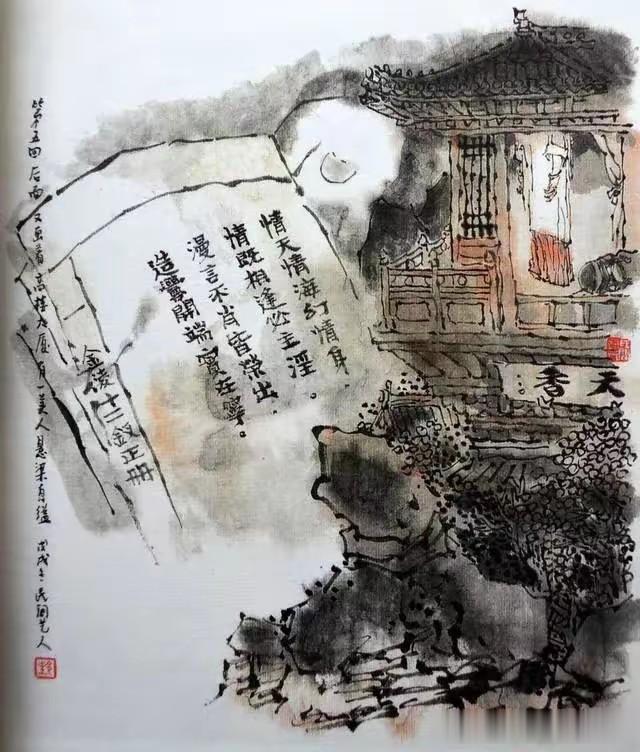 天香
情天情海幻情身.
情既相逢必主淫.
漫言不肖皆榮出.
造釁開端實在寧。
金陵十二釵正冊
此第五回后面又画着高楼大厦有一美人悬梁自缢 戊戌冬 民间艺人